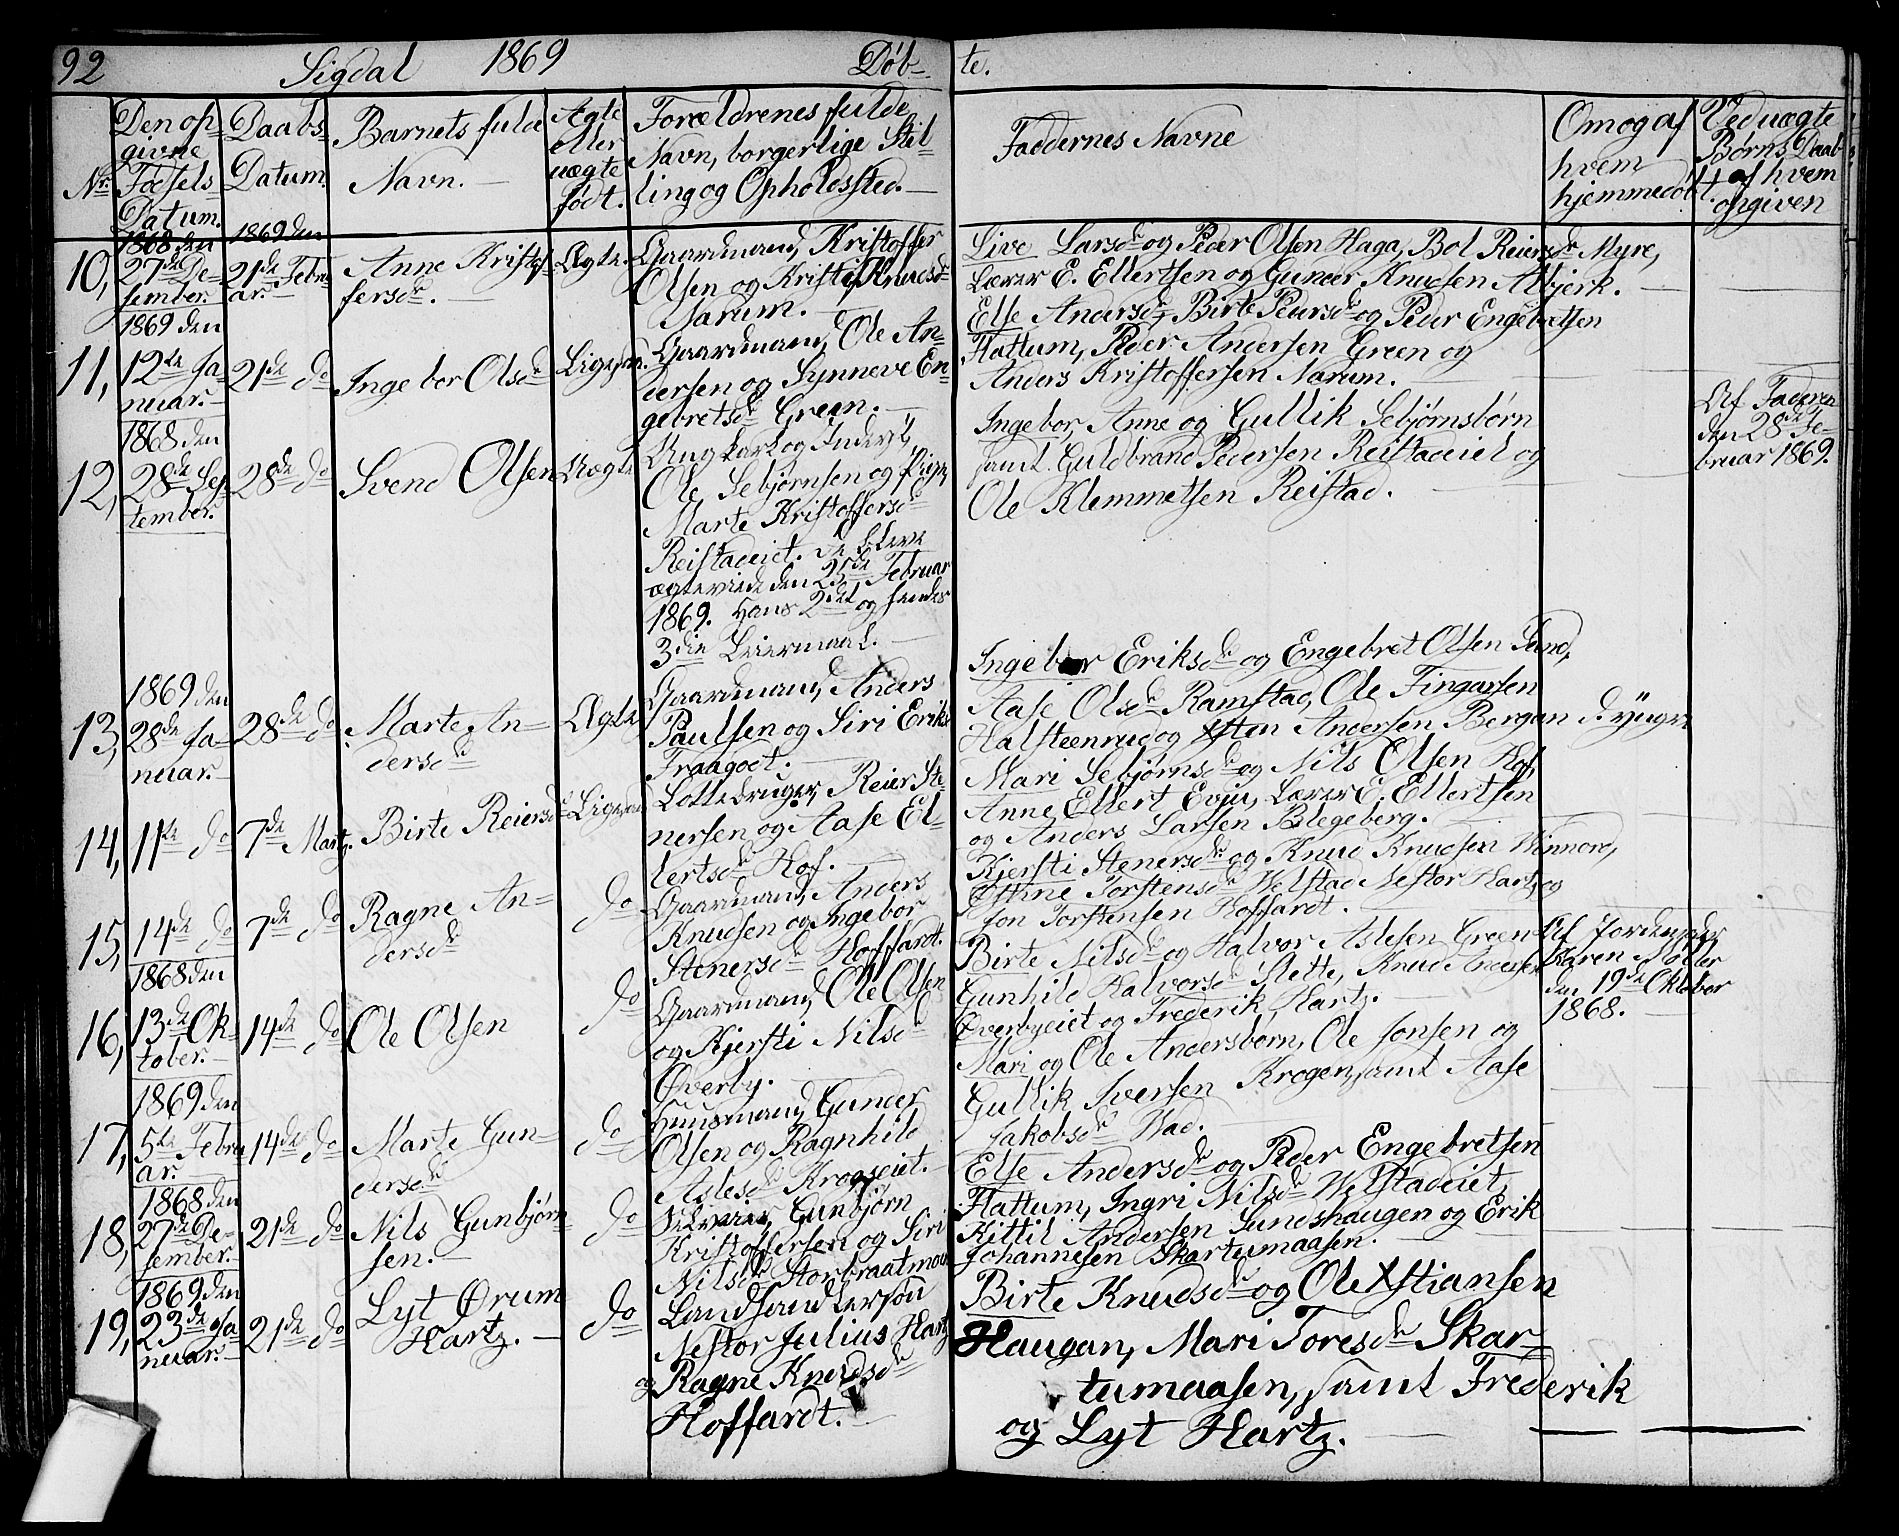 92 Sigdal 1869 Døb- te.
Nr.
Den op-
givne
Fødsels
Datum.
Daabs-
Datum.
Barnets fulde
Navn.
Ægte
eller
uægte
født.
Forældrenes fulde
Navn, borgerlige Stil-
ling og Opholdssted.
Faddernes Navne
Om og af
hvem
hjemmedøbt.
Ved uægte
Børns Daab
af hvem
opgiven
10,
1868 den
27de De-
sember.
1869 den
21de Febru-
ar.
Anne Kristof-
fersdr.
Ægte.
Gaardmand, Kristoffer
Olsen og Kristi Knudsdr
Narum.
Live Larsdr og Peder Olsen Haga, Bol Reiersdr Myre,
Lærer E. Ellertsen og Gunder Knudsen Albjerk.
11,
1869 den
12te Ja-
nuar.
21de do
Ingebor Olsdr
Ligesaa.
Gaardmand, Ole An-
dersen og Synneve En-
gebretsdr Green.
Else Andersdr, Birte Pedersdr og Peder Engebretsen
Flattum, Peder Andersen Green og
Anders Kristoffersen Narum.
12,
1868 den
28de Sep-
tember.
28de do
Svend Olsen
Uægte
Ungkarl og Inderst,
Ole Sebjørnsen og Pige,
Marte Kristoffersdr
Reistadeiet. De bleve
ægteviede den 25de Februar
1869. Hans 2det og hendes
3die Leiermaal.
Ingebor, Anne og Gullik Sebjørnsbørn
samt Guldbrand Pedersen Reistadeiet og
Ole Klemmetsen Reistad.
Af Faderen
den 28de Fe-
bruar 1869.
13,
1869 den
28de Ja-
nuar.
28de do
Marte An-
dersdr
Ægte
Gaardmand, Anders
Paulsen og Siri Eriksdr
Fraagot.
Ingebor Eriksdr og Engebret Olsen Lund,
Aase Olsdr Ramstad, Ole Fingarsen
Halsteenrud og Xsten Andersen Bergan d. yngre
14,
11te do
7de Marts.
Birte Reiersdr
Ligesaa
Lottedruger, Reier Ste-
nersen og Aase El-
lertsdr Hof.
Mari Sebjørnsdr og Nils Olsen Hof,
Anne Ellert Evju, Lærer E. Ellertsen
og Anders Larsen Blegeberg.
15,
14de do
7de do
Ragne An-
dersdr
do
Gaardmand, Anders
Knudsen og Ingebor
Stenersdr Hoffardt.
Kjersti Stenersdr og Knud Knudsen Winnord,
Othine Torstensdr Welstad Nestor Hartz og
Jon Torstensen Hoffardt.
16,
1868 den
13de Ok-
tober.
14de do
Ole Olsen
do
Gaardmand, Ole Olsen
og Kjersti Nilsdr
Øverby.
Birte Nilsdr og Halvor Aslesen Green
Gunhild Halvorsdr Slette, Knud Andersen
Øverbyeiet og Frederik Hartz.
Af Jordemoder
Karen Møller
den 19de Oktober
1868.
17,
1869 den
5te Febru-
ar.
14de do
Marte Gun-
dersdr
do
Huusmand, Gunder
Olsen og Ragnhild
Aslesdr Krogseiet.
Mari og Ole Andersbørn, Ole Jonsen og
Gullik Iversen Krogen, samt Aase
Jakobsdr Wad.
18,
1868 den
27de De-
sember.
21de do
Nils Gunbjørn-
sen.
do
Selveier, Gunbjørn
Kristoffersen og Siri
Nilsdr Storbraatmoen
Else Andersdr og Peder Engebretsen
Flattum, Ingri Nilsdr Welstadeiet,
Kittil Andersen Sundshaugen og Erik
Johannesen Skartumaasen.
19,
1869 den
23de Ja-
nuar.
21de do
Lyt Ørum
Hartz.
do
Landhandlersøn
Nestor Julius Hartz
og Ragne Knudsdr
Hoffardt.
Birte Knudsdr og Ole Xstiansen
Haugan, Mari Toresdr Skar-
tumaasen, samt Frederik
og Lyt Hartz.